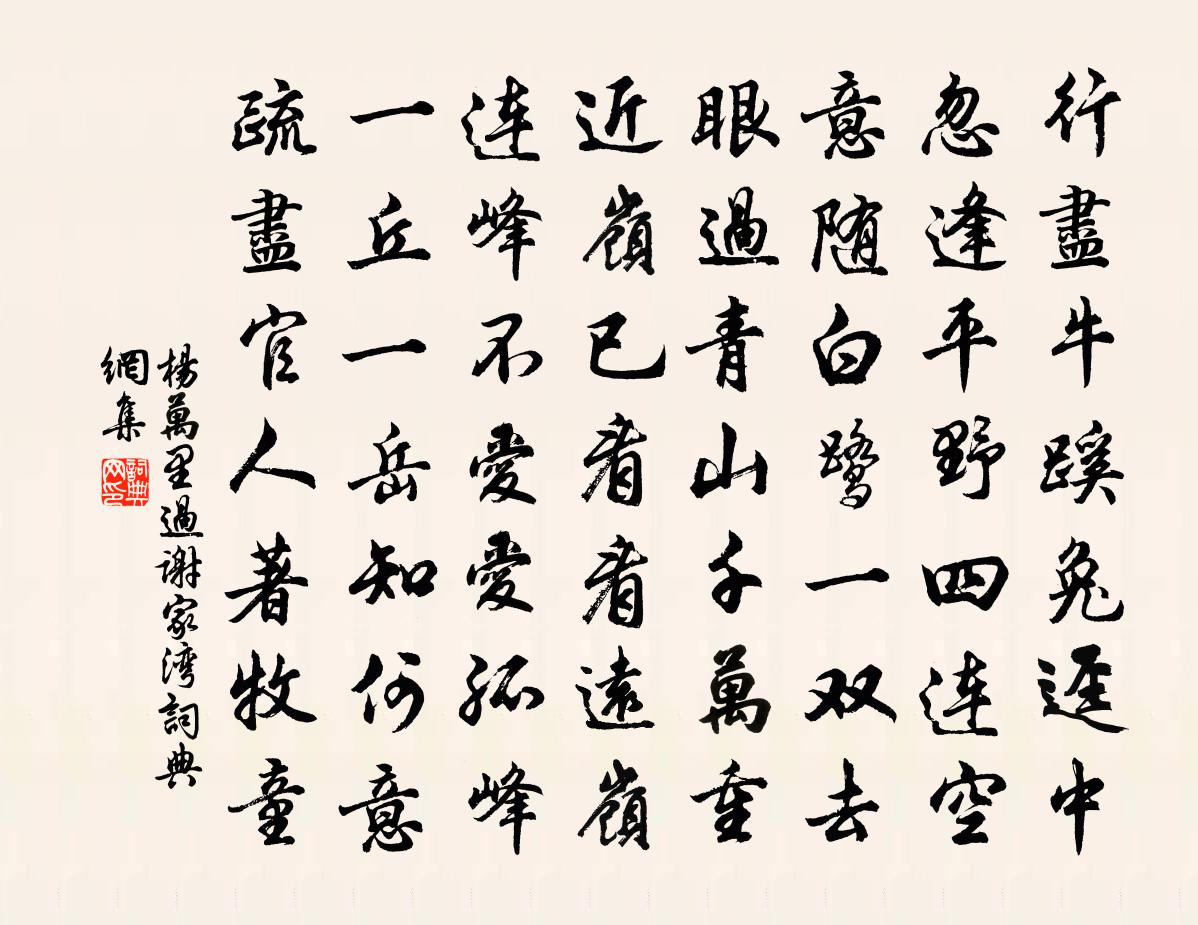 行盡牛蹊兔逕中
忽逢平野四連空
意随白鹭一双去
眼過青山千萬重
近嶺已看看遠嶺
連峰不愛愛孤峰
一丘一岳知何意
疏盡官人著牧童
楊萬里過謝家湾詞典
網集
詞典
网印